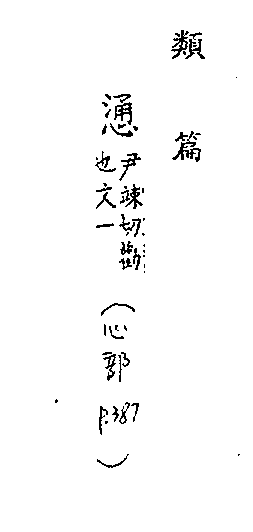 類篇
慂
尹竦切
也文一
(心部 p.387)